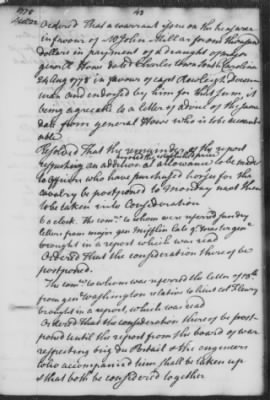 1778
43
Ordered That a warrant issue on the treasurer
in favour of Mr John
dollars in payment of a draught of major
general Howe dated Charles town South Carolina
24 Aug 1778 in favour of capt Rawleigh
and endorsed by him for that sum, it
being agreeable to a letter of advice of the same
date from general Howe who is to be account-
able
Resolved That the remainder of the report
respecting an additional allowance to be made
to officers who have purchased horses for the
cavalry be postponed to Monday next then
to be taken into consideration
6 o clock. The comee to whom were referred sundry
letters from major gen Mifflin late qr master genl
brought in a report which was read
Ordered That the consideration thereof be
postponed.
The comee to whom was referred the letter of 13th
from genl Washington relative to lieut col Fleury
brought in a report, which was read
Ordered That the consideration thereof be post-
poned until the report from the board of war
respecting brig du Portail & the engineers
who accompanied him shall be taken up
& that both be considered together